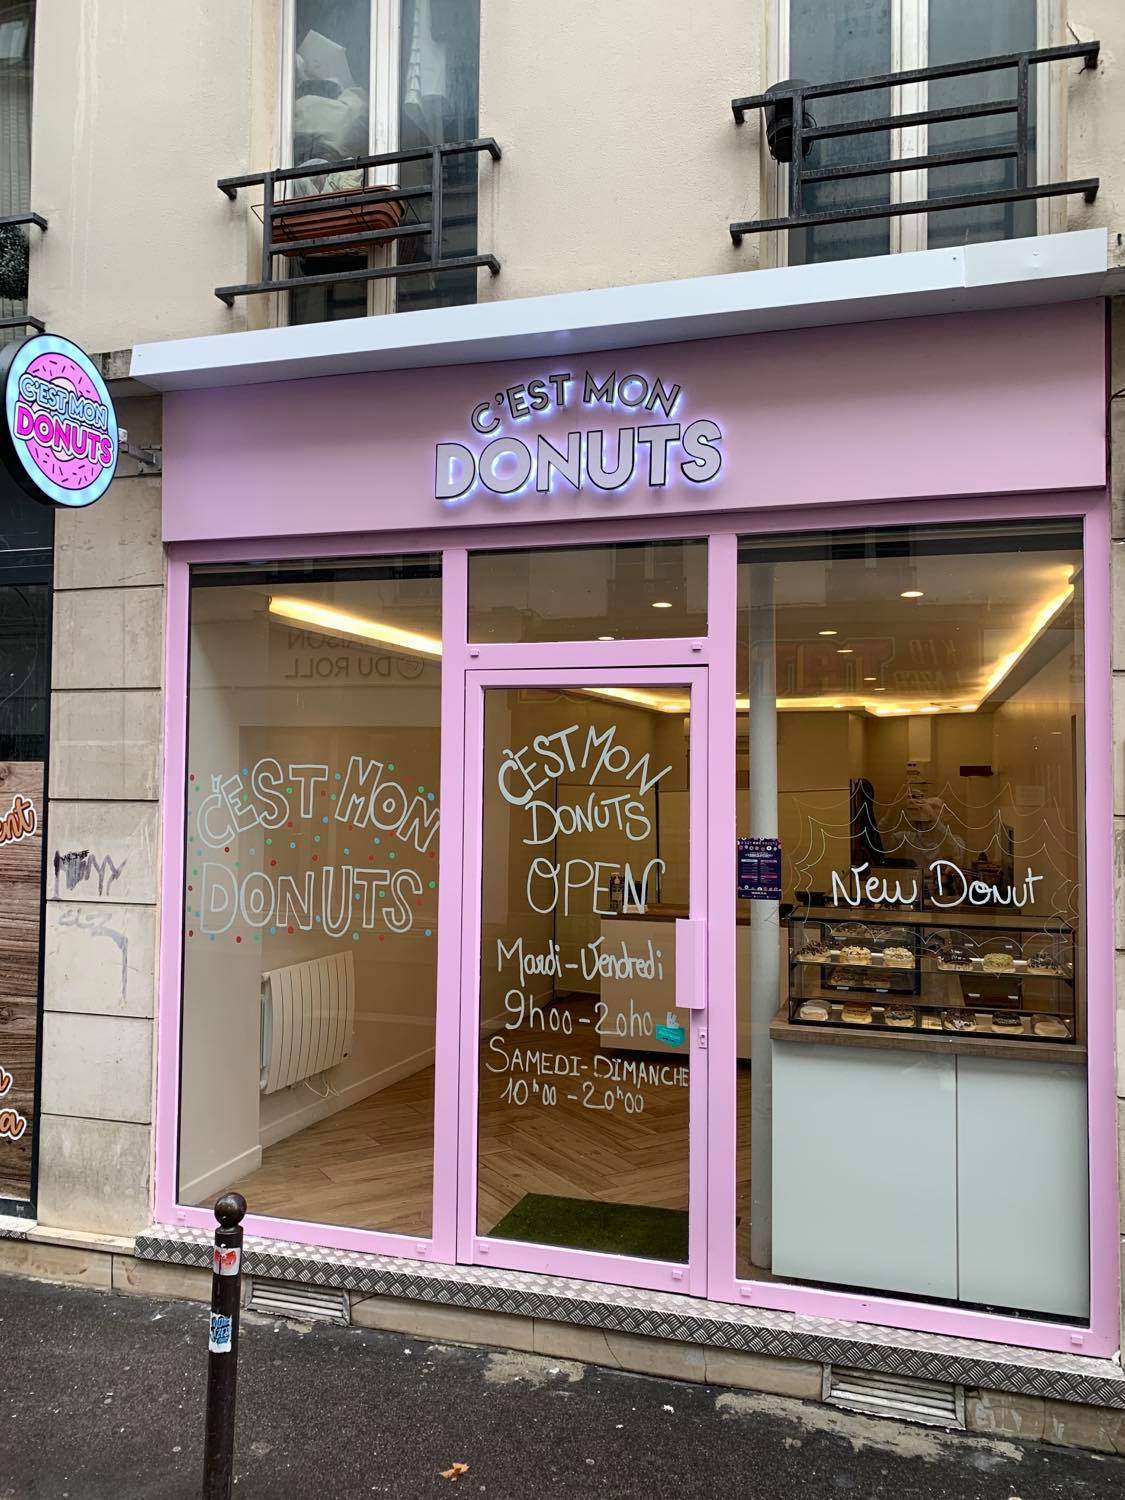 C'EST MON
DONUTS
C'EST MON
DONUTS
MAISON
DU ROLL
C'EST MON
DONUTS
C'EST MON
DONUTS
OPEN
Mardi-Vendredi
9h00-20h0
SAMEDI-DIMANCHE
10h00-20h00
New Donut